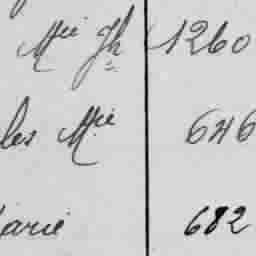 Mie Jh 1260
les Mie 646
arie 682